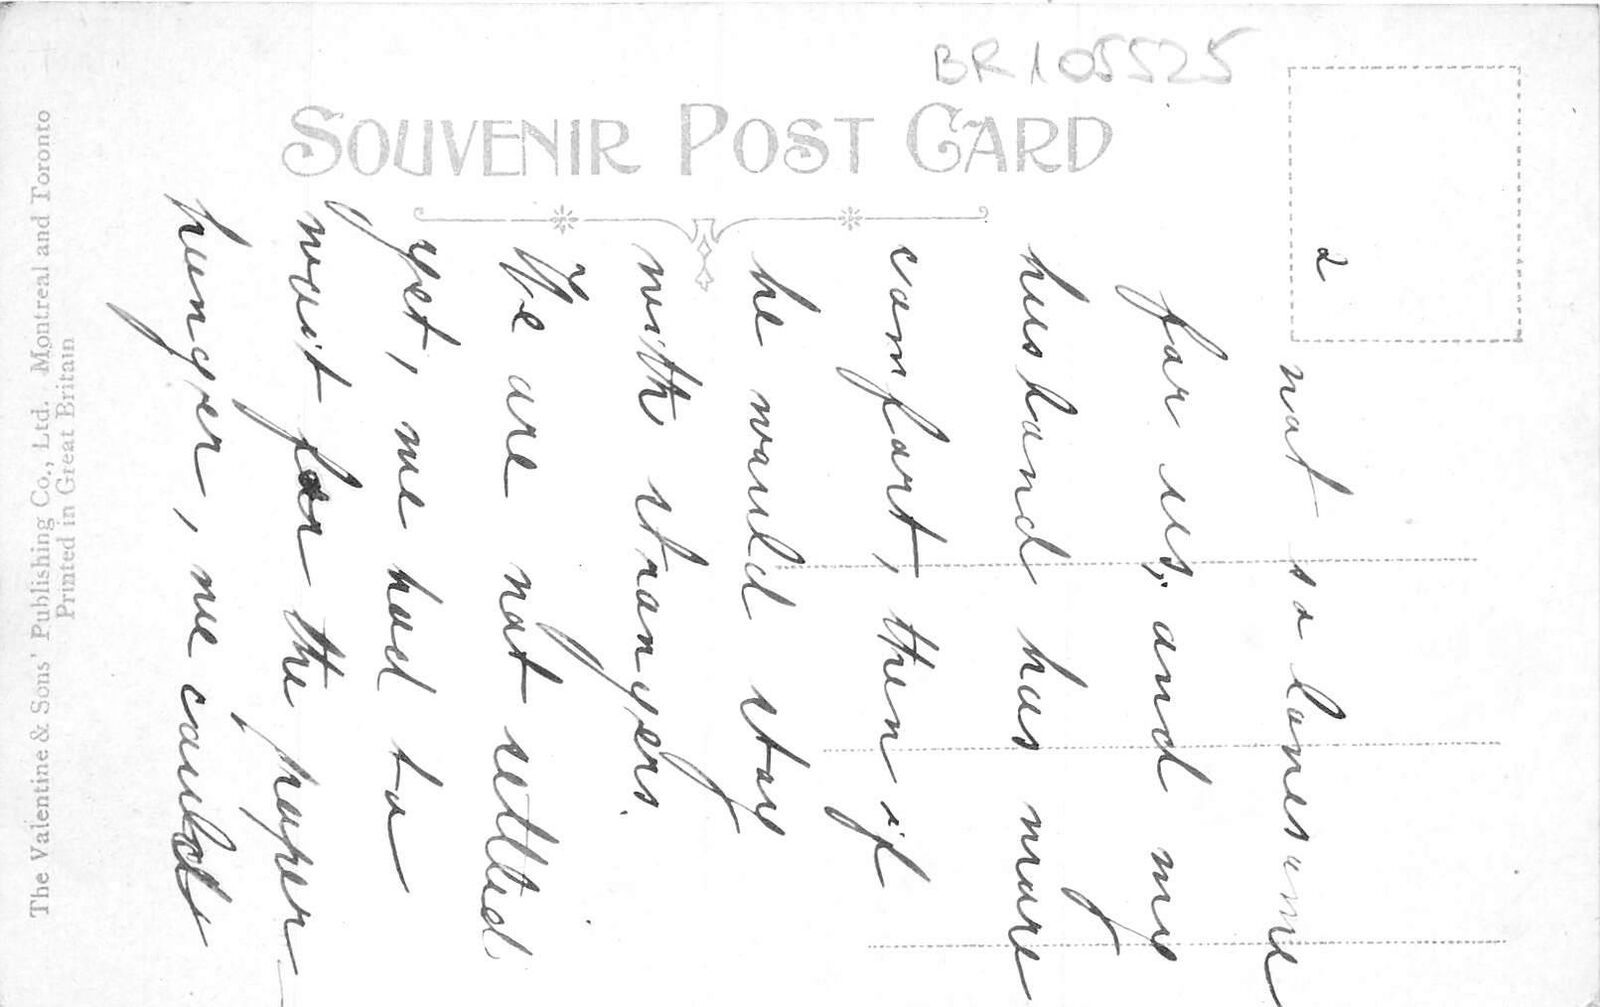 BR105525
SOUVENIR POST CARD
The Valentine & Sons' Publishing Co., Ltd. Montreal and Toronto
Printed in Great Britain
2
not so lonesome
for us, and my
husband has more
comfort, then if
he would stay
with strangers.
We are not settled
yet, we had to
wait for the paper
hunger, we could